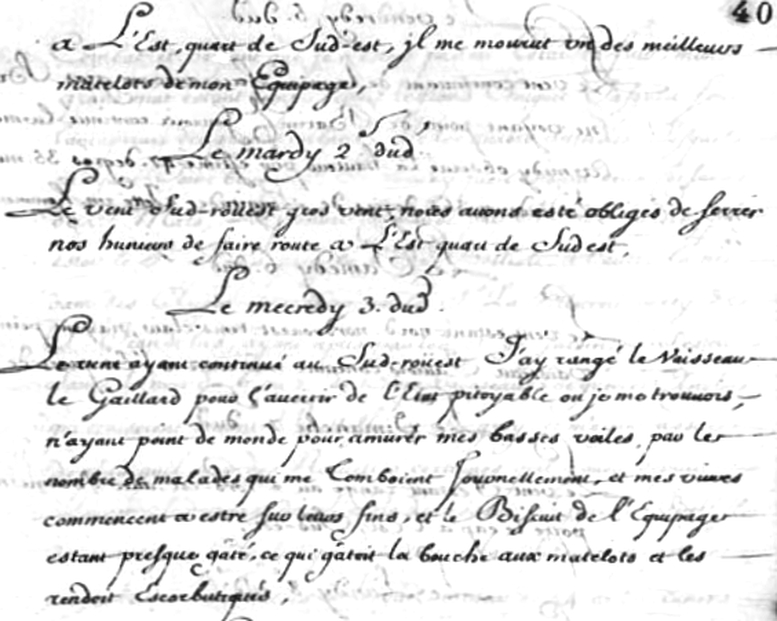 40
a L'Est, quart de Sud-est, jl me mourut vn des meilleurs
matelots de mon Equipage,
Le mardy 2.^e dud.
Le vent Sud-roüest gros vent, nous avons esté obligés de serrer
nos huniers de faire route a L'Est quart de Sud est,
Le mecredy 3. dud.
Le vent ayant continué au Sud-roüest J'ay rangé le Vaisseau
le Gaillard pour l'avertir de l'Etat pitoyable ou je me trouvois,
n'ayant point de monde pour amurer mes basses voiles, par le
nombre de malades qui me tomboient journellement, et mes vivres
commencent a estre sur leurs fins, et le Biscuit de l'Equipage
estant presque gâté, ce qui gatoit la bouche aux matelots et les
rendoit Escorbutiqués,